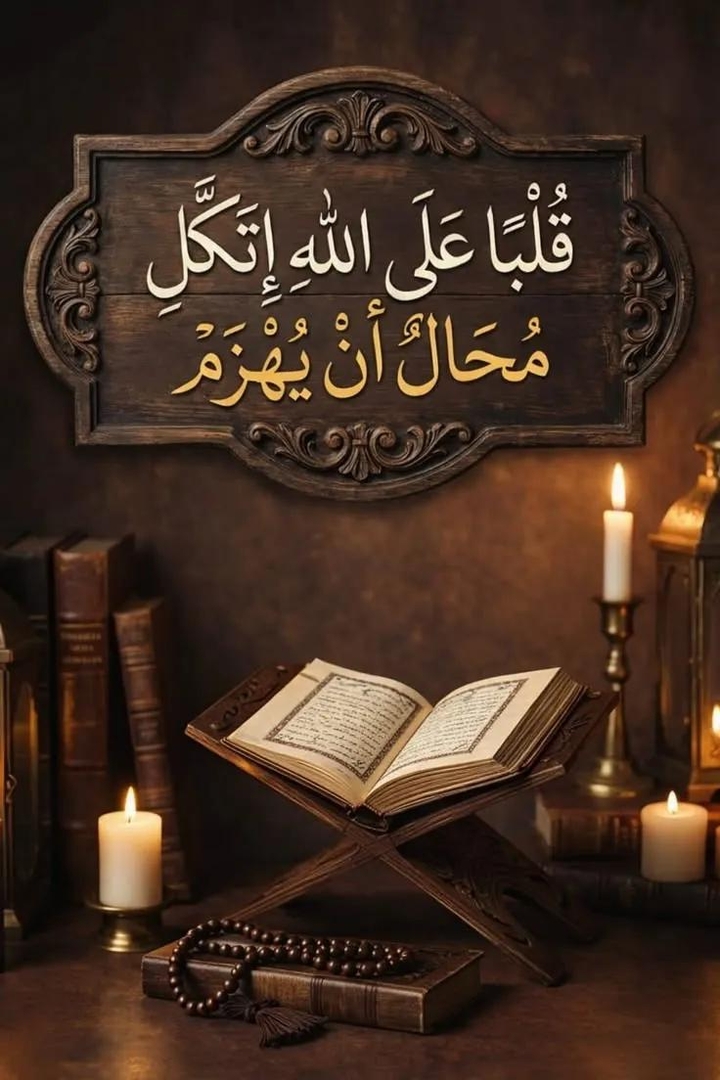 قُلْبًا عَلَى اللهِ إِتَكَّلِ
مُحَالٌ أنْ يُهْزَمْ